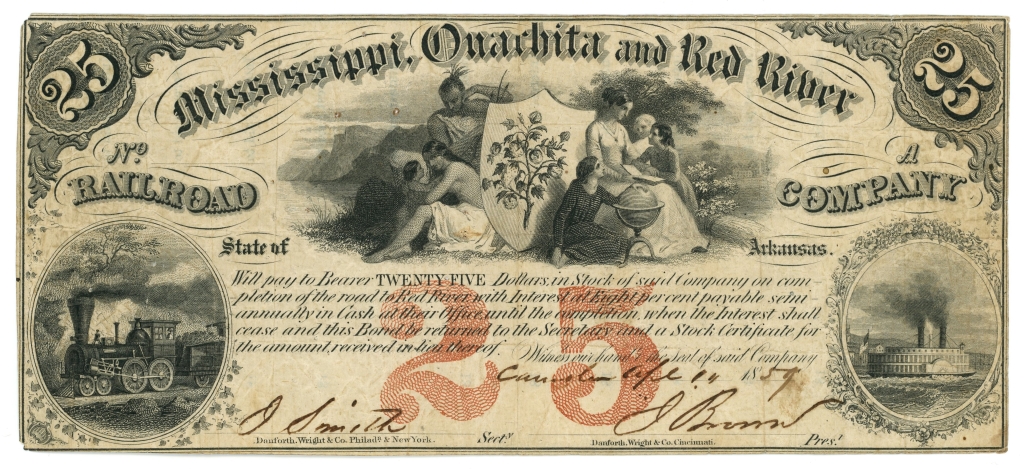 25
25
Mississippi, Ouachita and Red River
No.
A
RAILROAD
COMPANY
State of
Arkansas.
Will pay to Bearer TWENTY FIVE Dollars, in Stock of said Company on com-
pletion of the road to Red River with Interest at Eight per cent payable semi
annually in Cash at their Office, until the completion, when the Interest shall
cease and this Bond be returned to the Secretary and a Stock Certificate for
the amount received in lieu thereof.
Witness our hands the seal of said Company
25
Camden Apl 14 1859
J Smith
J Brown
Danforth, Wright & Co. Philada. & New York.
Secty.
Danforth, Wright & Co. Cincinnati.
Prest.